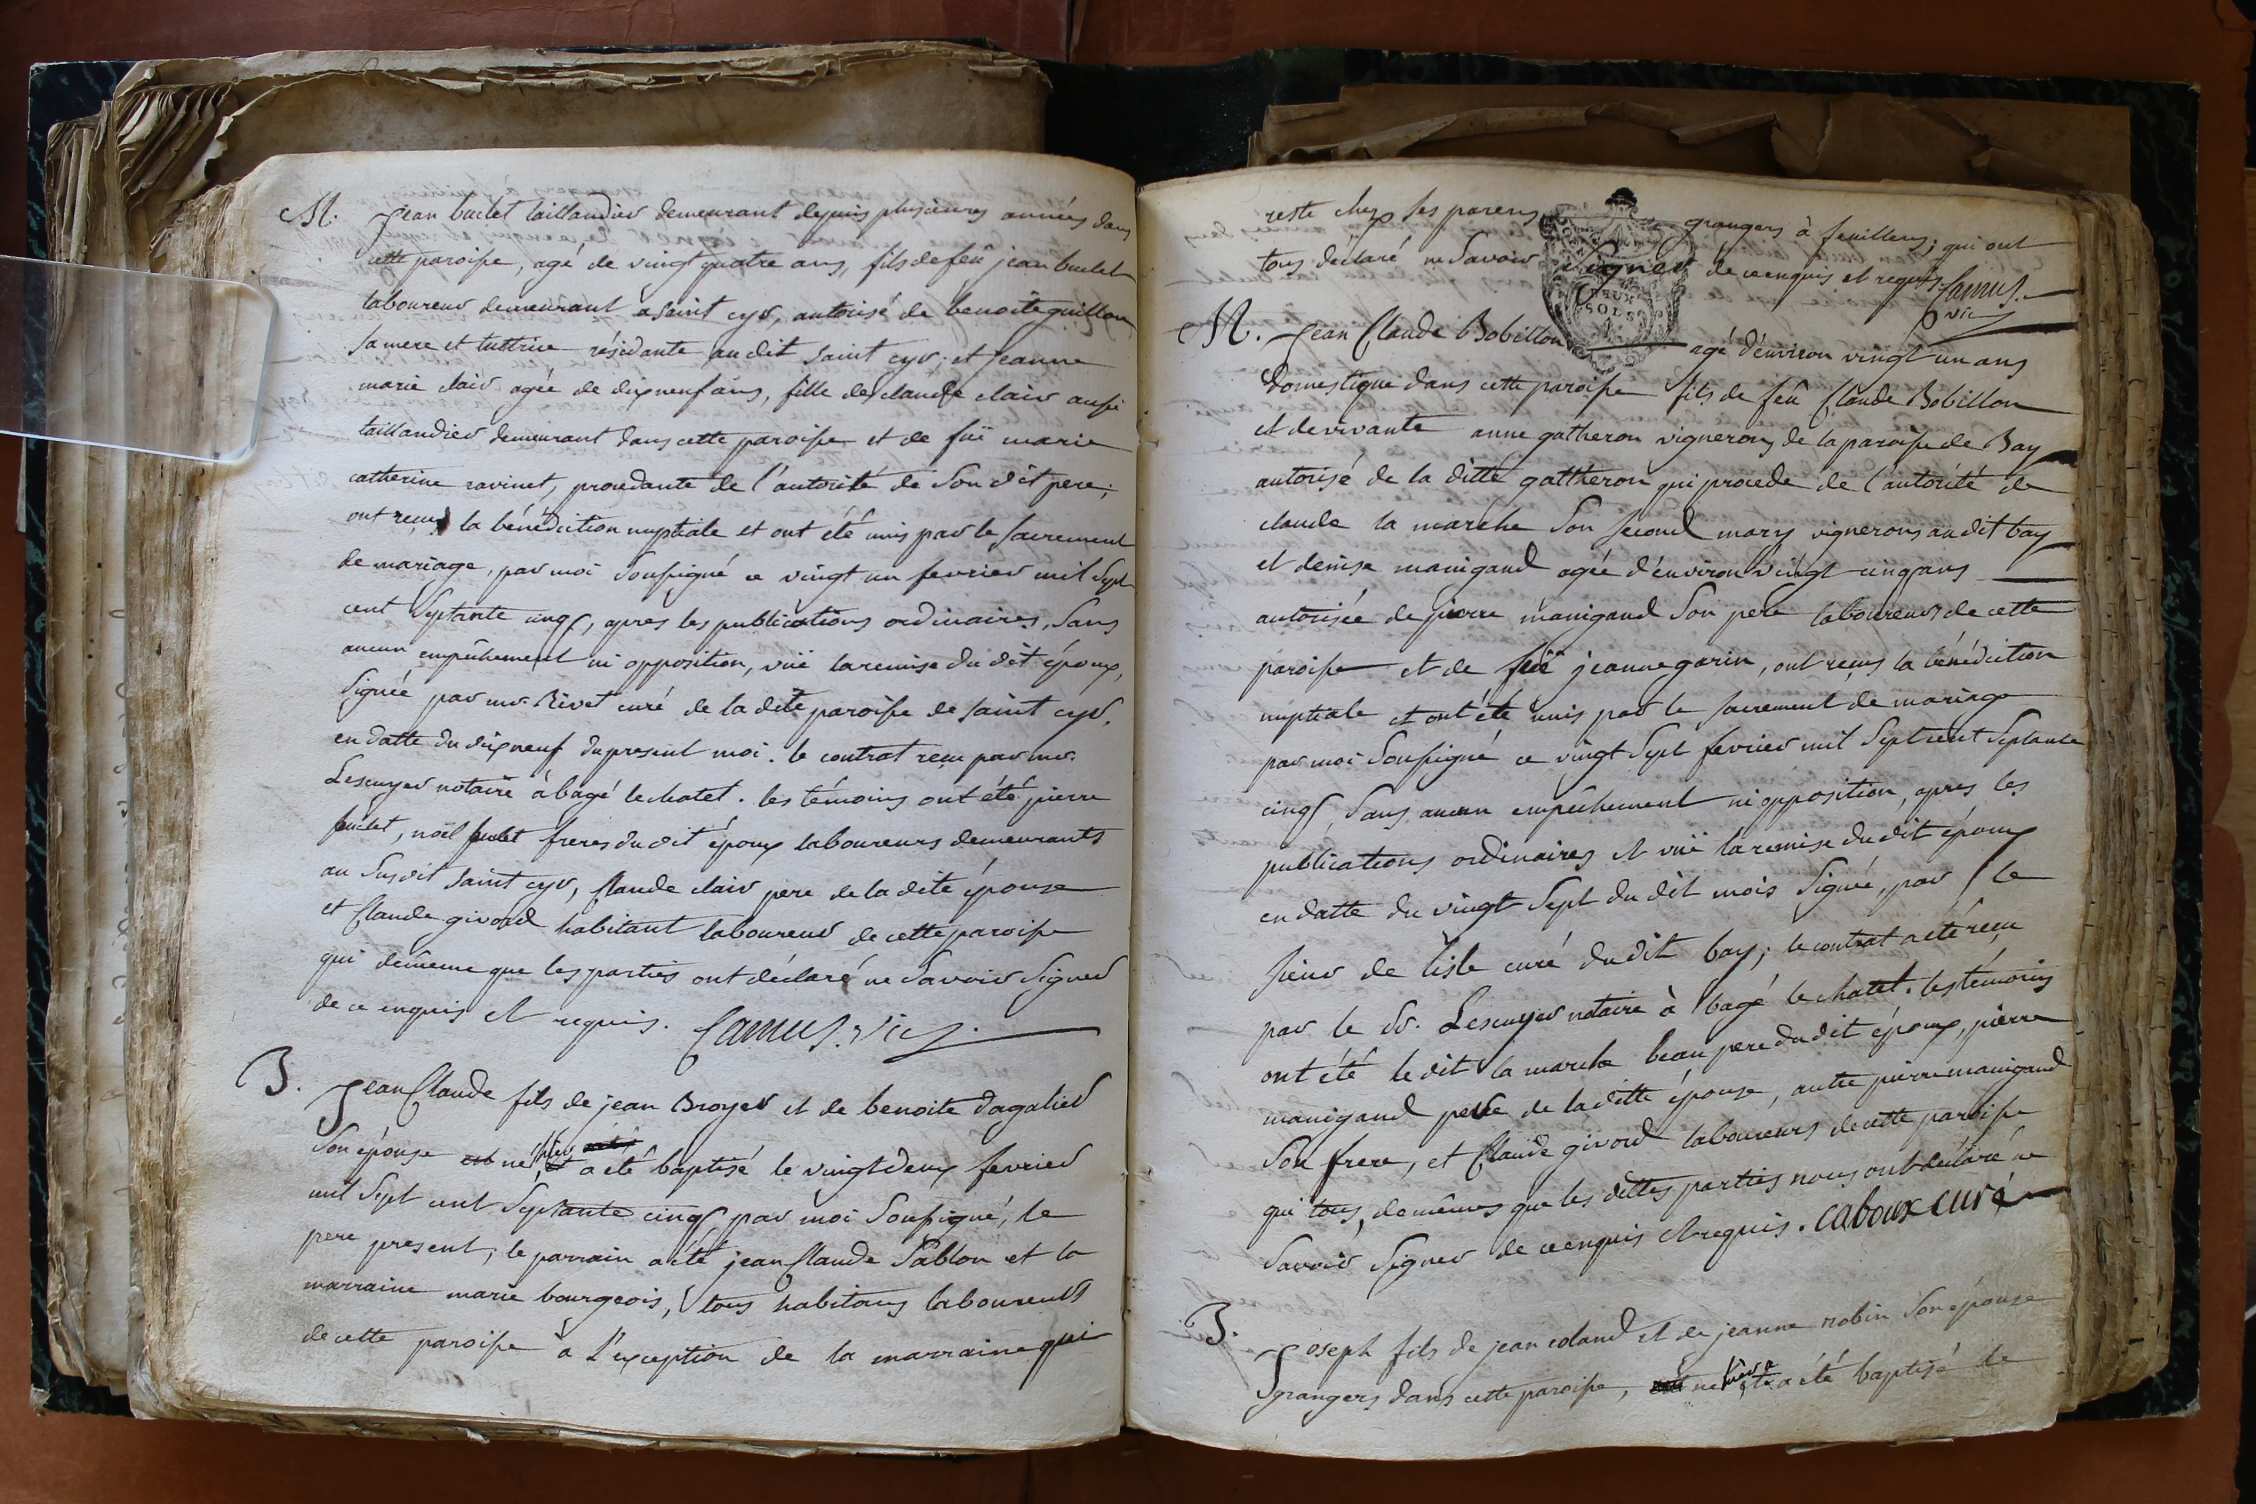 M. Jean buclet taillandier demeurant depuis plusieurs années dans
cette paroisse, agé de vingt quatre ans, fils de feû jean buclet
laboureur demeurant a saint cyr, autorisé de benoite guillon
sa mere et tuttrice résidante au dit saint cyr; et jeanne
marie clair agée de dixneuf ans, fille de claude clair aussi
taillandier demeurant dans cette paroisse et de füe marie
catherine ravinet, procedante de l'autorité de son dit pere;
ont reçus la bénédiction nuptiale et ont été unis par le sacrement
de mariage, par moi soussigné ce vingt un fevrier mil sept
cent septante cinq, apres les publications ordinaires, sans
aucun empêchement ni opposition, vüe la remise du dit époux,
signée par mr. Rivet curé de la dite paroisse de saint cyr,
en datte du dixneuf du present moi. le contrat reçu par mr.
Lescuyer notaire à bagé le chatel. les témoins ont été pierre
buclet, noël buclet freres du dit époux laboureurs demeurants
au susdit saint cyr, Claude clair pere de la dite épouse
et Claude givord habitant laboureur de cette paroisse
qui de meme que les parties ont déclaré ne savoir signer
de ce enquis et requis. Camus. vic.
B. Jean Claude fils de jean Broyer et de benoite dagalier
son épouse né hier a été baptisé le vingt deux fevrier
mil sept cent septante cinq par moi soussigné, le
pere present; le parrain a été jean Claude Sablon et la
marraine marie bourgeois, tous habitans laboureurs
de cette paroisse à l'exception de la marraine qui
reste chez ses parens grangers à feuillens; qui ont
tous déclaré ne savoir signer de ce enquis et requis Camus.
vic
SOLS
M. Jean Claude Bobillon agé d'environ vingt un ans
domestique dans cette paroisse fils de feû Claude Bobillon
et de vivante anne gatheron vignerons de la paroisse de Bay
autorisé de la ditte gattheron qui procede de l'autorité de
claude la marche son second mary vignerons au dit bay
et denise manigand agée d'environ vingt cinq ans
autorisée de pierre manigand son pere laboureur de cette
paroisse et de füe jeanne garin, ont reçus la bénédiction
nuptiale et ont été unis par le sacrement de mariage
par moi soussigné ce vingt sept fevrier mil sept cent septante
cinq, sans aucun empêchement ni opposition, apres les
publications ordinaires et vüe la remise du dit époux
en datte du vingt sept du dit mois signé, par le
sieur de lisle curé du dit bay; le contrat a été reçu
par le sr. Lescuyer notaire à bagé le chatel. les témoins
ont été le dit la marche beau pere du dit époux, pierre
manigand pere de la ditte épouse, autre pierre manigand
son frere, et Claude givord laboureurs de cette paroisse
qui tous, de mêmes que les dittes parties nous ont déclaré ne
savoir signer de ce enquis et requis. caboux curé
B. Joseph fils de jean coland et de jeanne robin son épouse
grangers dans cette paroisse, né hier a été baptisé le